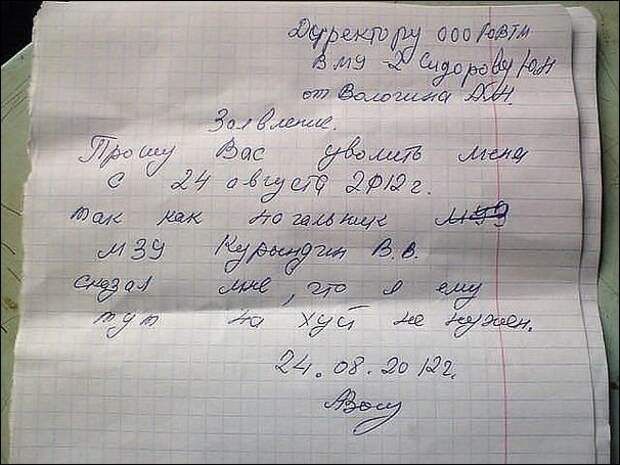 Директору ООО РОВТМ
ВМУ-2 Сидорову Ю.Н
от Вологина Д.Н.
Заявление.
Прошу Вас уволить меня
с 24 августа 2012 г.
так как начальник
МЗУ Курындин В.В.
сказал мне, что я ему
тут на хуй не нужен.
24.08.2012г.